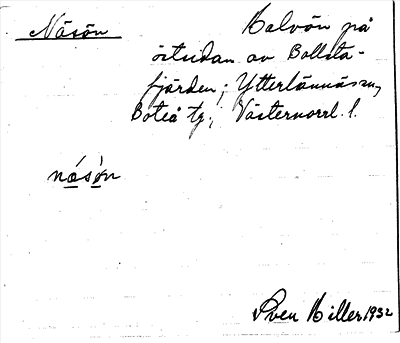 Näsön
Halvön på
östsidan av Bollsta-
fjärden; Ytterlännäs sn,
Boteå tg, Västernorrl. l.
nä́sö̀n
Sven Hiller 1932